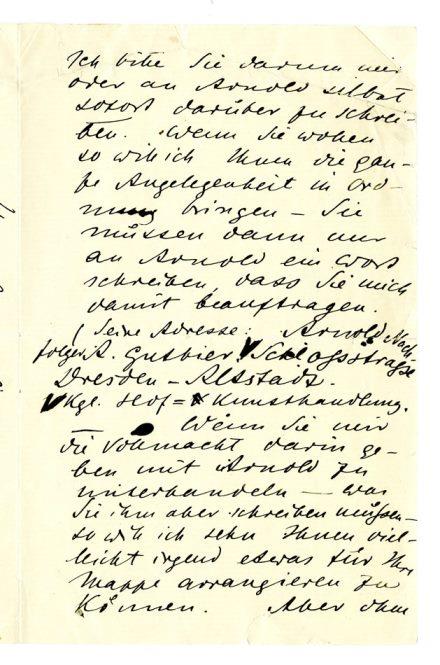 Ich bitte Sie darum mir
oder an Arnold selbst
sofort darüber zu schrei-
ben. Wenn Sie wollen
so will ich Ihnen die gan-
ze Angelegenheit in Ord-
nung bringen – Sie
müssen dann nur
an Arnold ein Wort
schreiben, dass Sie mich
damit beauftragen.
( Seine Adresse: Arnold Nach-
folger A. Gutbier Schlossstrasse
Dresden – Altstadt.
Kgl. Hof = Kunsthandlung.
Wenn Sie mir
die Vollmacht darin ge-
ben mit Arnold zu
unterhandeln — was
Sie ihm aber schreiben müssen –
so will ich sehn Ihnen viel-
leicht irgend etwas für Ihre
Mappe arrangieren zu
können. Aber ohne